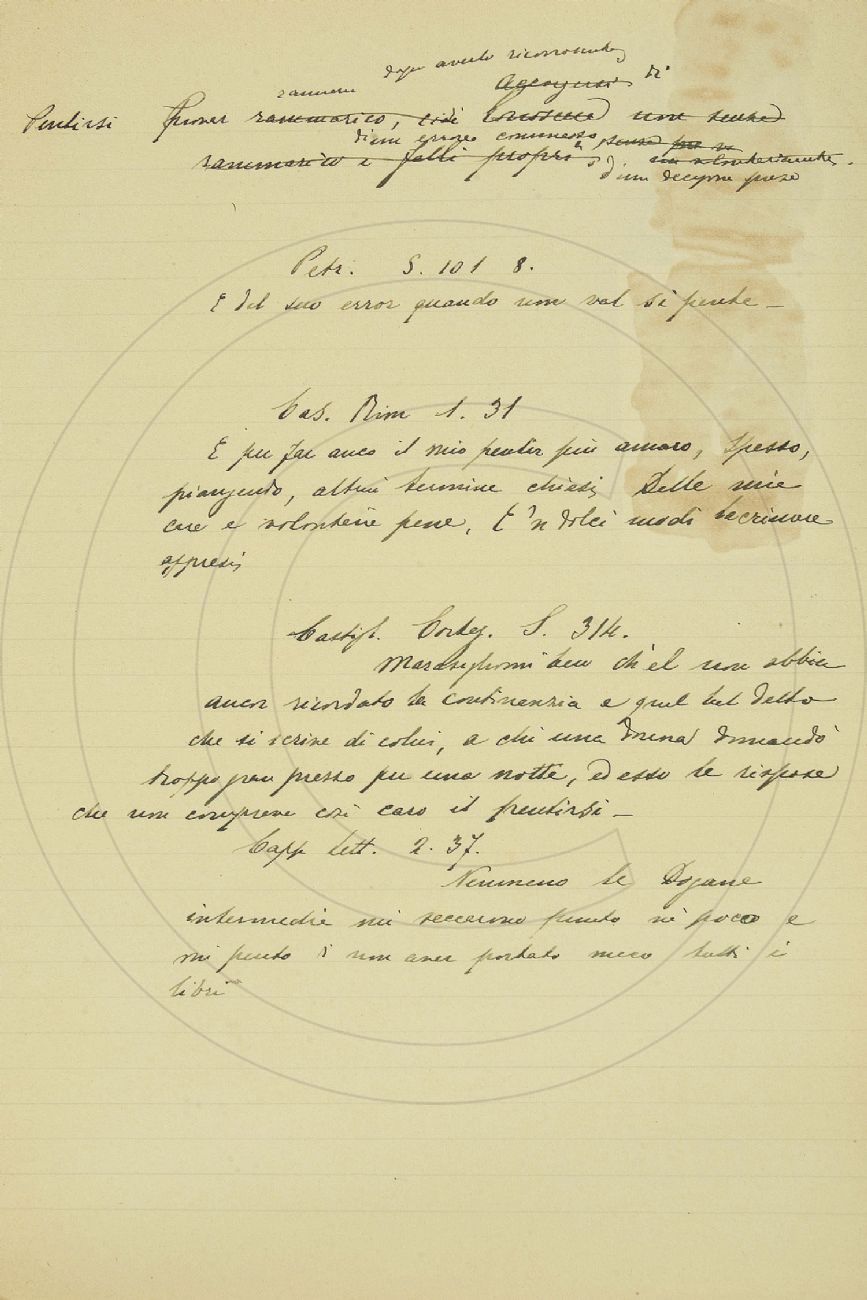 dopo averlo riconosciuto
ramm Accorgersi di
Pentirsi Prover rammarico, cioè Conoscere non senza
d'un errore commesso, senza
rammarico e falli propri o di
d'un decisione presa
Petr. S. 101 8.
E del suo error quando non val si pente –
Cas. Rim 1. 31
E per far anco il mio pentir più amaro, Spesso,
piangendo, altrui termine chiesi Delle mie
care e volontarie pene, E 'n dolci modi lacrimare
appresi,
Castigl. Corteg. S. 314.
Maravegliomi ben ch'el non abbia
ancor ricordato la continenzia e quel bel detto
che si scrive di colui, a chi una donna dimandò
troppo gran prezzo per una notte, ed esso le rispose
che non comprava così caro il pentirsi –
Capp lett. 2. 37.
Nemmeno le Dogane
intermedie mi seccarono punto nè poco e
mi pento di non aver portato meco tutti i
libri